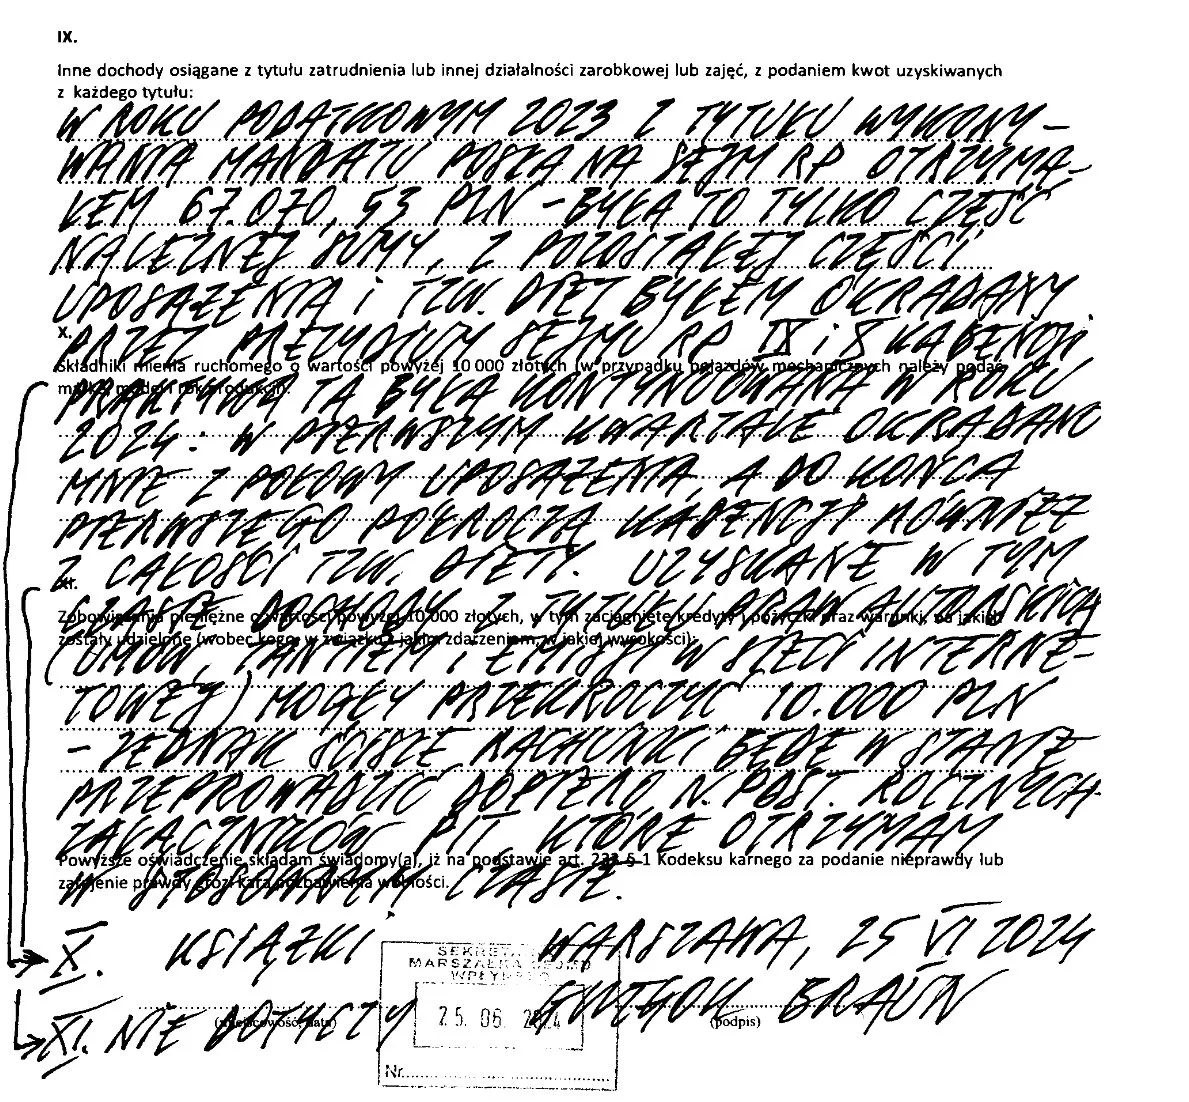 IX.
Inne dochody osiągane z tytułu zatrudnienia lub innej działalności zarobkowej lub zajęć, z podaniem kwot uzyskiwanych
z każdego tytułu:
W ROKU PODATKOWYM 2023 Z TYTUŁU WYKONY-
WANIA MANDATU POSŁA NA SEJM RP OTRZYMA-
ŁEM 67.070,53 PLN - BYŁA TO TYLKO CZĘŚĆ
NALEŻNEJ SUMY, Z POZOSTAŁEJ CZĘŚCI
UPOSAŻENIA I TZW. DIET BYŁEM OKRADANY
X.
PRZEZ PREZYDIUM SEJMU RP IX i X KADENCJI.
Składniki mienia ruchomego o wartości powyżej 10 000 złotych (w przypadku pojazdów mechanicznych należy podać
markę, model i rok produkcji):
PRAKTYKA TA BYŁA KONTYNUOWANA W ROKU
2024: W PIERWSZYM KWARTALE OKRADANO
MNIE Z POŁOWY UPOSAŻENIA, A DO KOŃCA
PIERWSZEGO PÓŁROCZA KADENCJI RÓWNIEŻ
Z CAŁOŚCI TZW. DIETY. UZYSKANE W TYM
XI.
CZASIE DOCHODY Z TYTUŁU PRAW AUTORSKICH
Zobowiązania pieniężne o wartości powyżej 10 000 złotych, w tym zaciągnięte kredyty i pożyczki oraz warunki, na jakich
zostały udzielone (wobec kogo, w związku z jakim zdarzeniem, w jakiej wysokości):
(UMÓW, TANTIEM I EMISJI W SIECI INTERNE-
TOWEJ) MOGŁY PRZEKROCZYĆ 10.000 PLN
- JEDNAK ŚCISŁE RACHUNKI BĘDĘ W STANIE
PRZEPROWADZIĆ DOPIERO N. PODST. ROCZNYCH
ZAŁĄCZNIKÓW PIT, KTÓRE OTRZYMAM
Powyższe oświadczenie składam świadomy(a), iż na podstawie art. 233 § 1 Kodeksu karnego za podanie nieprawdy lub
zatajenie prawdy grozi kara pozbawienia wolności.
W STOSOWNYM CZASIE.
X. KSIĄŻKI WARSZAWA, 25 VI 2024
SEKRETARIAT
MARSZAŁKA SEJMU
WPŁYNĘŁO
GRZEGORZ BRAUN
25. 06. 2024
(miejscowość, data) (podpis)
XI. NIE DOTYCZY
Nr